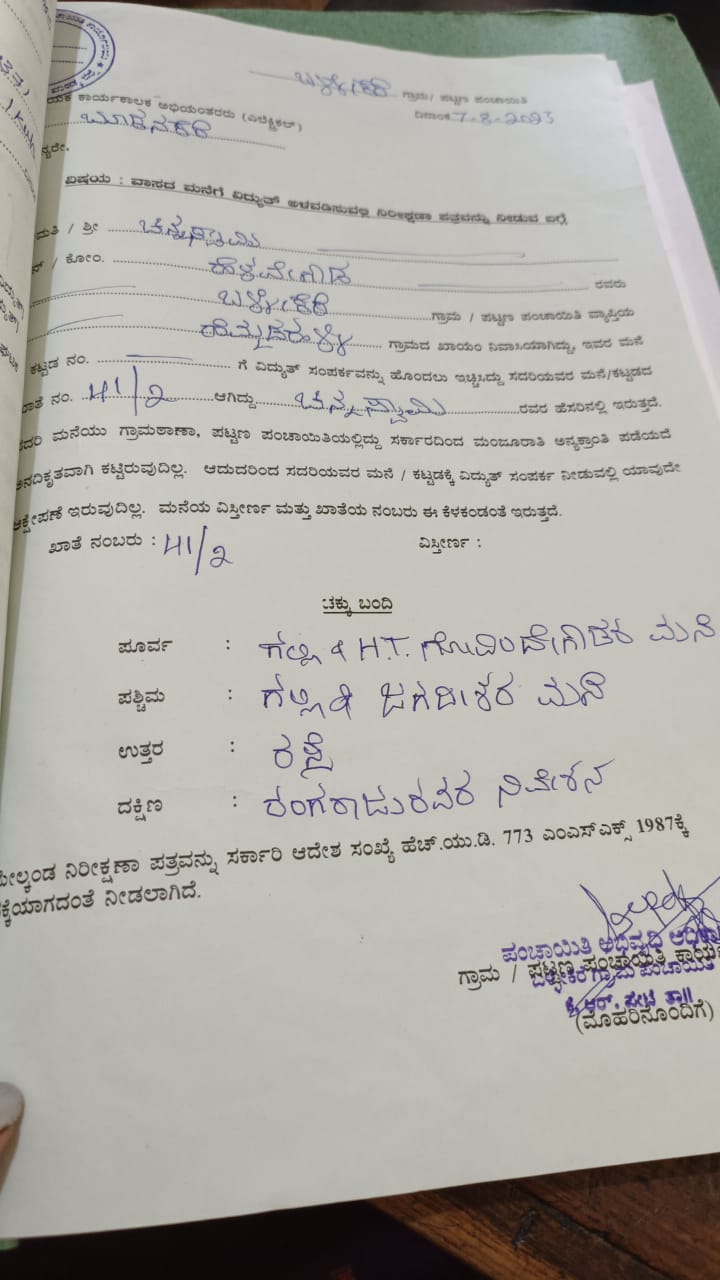 ಬಳ್ಳೇಕೆರೆ ಗ್ರಾಮ/ ಪಟ್ಟಣ ಪಂಚಾಯಿತಿ
ಕಾರ್ಯಕಾಲಕ ಅಭಿಯಂತರರು (ಎಲೆಕ್ಟ್ರಿಕಲ್) ದಿನಾಂಕ 7-8-2023
ಬೂಕನಕೆರೆ
ವಿಷಯ : ವಾಸದ ಮನೆಗೆ ವಿದ್ಯುತ್ ಅಳವಡಿಸುವಲ್ಲಿ ನಿರೀಕ್ಷಣಾ ಪತ್ರವನ್ನು ನೀಡುವ ಬಗ್ಗೆ
ಮತಿ / ಶ್ರೀ ಚನ್ನಸ್ವಾಮಿ
ನ್ / ಕೋಂ. ರವರು
ಬಳ್ಳೇಕೆರೆ ಗ್ರಾಮ / ಪಟ್ಟಣ ಪಂಚಾಯಿತಿ ವ್ಯಾಪ್ತಿಯ
ಗ್ರಾಮದ ಖಾಯಂ ನಿವಾಸಿಯಾಗಿದ್ದು, ಇವರ ಮನೆ
ಕಟ್ಟಡ ನಂ. ಗೆ ವಿದ್ಯುತ್ ಸಂಪರ್ಕವನ್ನು ಹೊಂದಲು ಇಚ್ಚಿಸಿದ್ದು ಸದರಿಯವರ ಮನೆ/ಕಟ್ಟಡದ
ಾತೆ ನಂ. 41/2 ಆಗಿದ್ದು ಚನ್ನಸ್ವಾಮಿ ರವರ ಹೆಸರಿನಲ್ಲಿ ಇರುತ್ತದೆ.
ಸದರಿ ಮನೆಯು ಗ್ರಾಮಠಾಣಾ, ಪಟ್ಟಣ ಪಂಚಾಯಿತಿಯಲ್ಲಿದ್ದು ಸರ್ಕಾರದಿಂದ ಮಂಜೂರಾತಿ ಅನ್ಯಕ್ರಾಂತಿ ಪಡೆಯದೆ
ಅನದಿಕೃತವಾಗಿ ಕಟ್ಟಿರುವುದಿಲ್ಲ. ಆದುದರಿಂದ ಸದರಿಯವರ ಮನೆ / ಕಟ್ಟಡಕ್ಕೆ ವಿದ್ಯುತ್ ಸಂಪರ್ಕ ನೀಡುವಲ್ಲಿ ಯಾವುದೇ
ಆಕ್ಷೇಪಣೆ ಇರುವುದಿಲ್ಲ. ಮನೆಯ ವಿಸ್ತೀರ್ಣ ಮತ್ತು ಖಾತೆಯ ನಂಬರು ಈ ಕೆಳಕಂಡಂತೆ ಇರುತ್ತದೆ.
ಖಾತೆ ನಂಬರು : 41/2 ವಿಸ್ತೀರ್ಣ :
ಚಕ್ಕು ಬಂದಿ
ಪೂರ್ವ : ಗಲ್ಲಿ & H.T. ಗೋವಿಂದೇಗೌಡರ ಮನೆ
ಪಶ್ಚಿಮ : ಗಲ್ಲಿ & ಜಗದೀಶರ ಮನೆ
ಉತ್ತರ : ರಸ್ತೆ
ದಕ್ಷಿಣ : ರಂಗರಾಜುರವರ ನಿವೇಶನ
ಮೇಲ್ಕಂಡ ನಿರೀಕ್ಷಣಾ ಪತ್ರವನ್ನು ಸರ್ಕಾರಿ ಆದೇಶ ಸಂಖ್ಯೆ ಹೆಚ್.ಯು.ಡಿ. 773 ಎಂಎಸ್ಎಕ್ಸ್ 1987ಕ್ಕೆ
ಕ್ಕೆಯಾಗದಂತೆ ನೀಡಲಾಗಿದೆ.
ಪಂಚಾಯಿತಿ ಅಭಿವೃದ್ಧಿ
ಗ್ರಾಮ / ಪಟ್ಟಣ ಪಂಚಾಯಿತಿ
ಬಳ್ಳೇಕೆರೆ ಗ್ರಾಮ ಪಂಚಾಯಿತಿ
ಕೆ.ಆರ್. ಪೇಟೆ ತಾ||
(ಮೊಹರಿನೊಂದಿಗೆ)